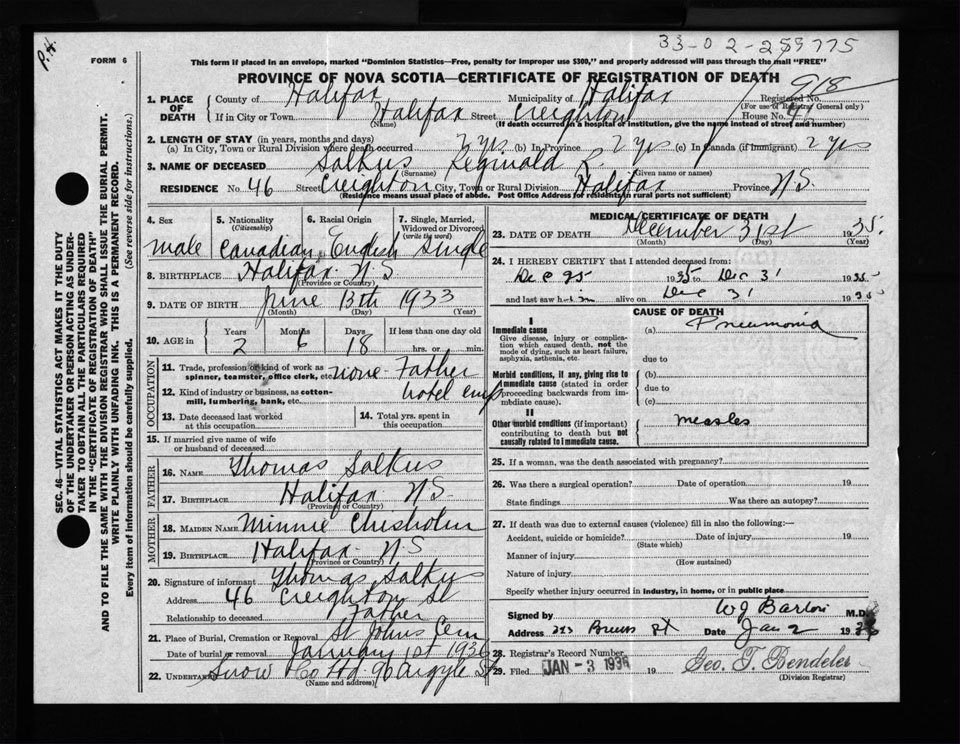 33-02-259775
P.H.
FORM 6
This form if placed in an envelope, marked "Dominion Statistics—Free, penalty for improper use $300," and properly addressed will pass through the mail "FREE"
PROVINCE OF NOVA SCOTIA—CERTIFICATE OF REGISTRATION OF DEATH
918
SEC. 46—VITAL STATISTICS ACT MAKES IT THE DUTY
OF THE UNDERTAKER OR PERSON ACTING AS UNDER-
TAKER TO OBTAIN ALL THE PARTICULARS REQUIRED
IN THE "CERTIFICATE OF REGISTRATION OF DEATH"
AND TO FILE THE SAME WITH THE DIVISION REGISTRAR WHO SHALL ISSUE THE BURIAL PERMIT.
WRITE PLAINLY WITH UNFADING INK. THIS IS A PERMANENT RECORD.
Every item of information should be carefully supplied. (See reverse side for instructions.)
1. PLACE OF DEATH County of Halifax Municipality of Halifax Registered No.
(For use of Registrar General only)
If in City or Town Halifax Street Creighton House No. 46
(Name) (If death occurred in a hospital or institution, give the name instead of street and number)
2. LENGTH OF STAY (in years, months and days)
(a) In City, Town or Rural Division where death occurred 2 yrs (b) In Province 2 yrs (c) In Canada (if immigrant) 2 yrs
3. NAME OF DECEASED Salkus Reginald R.
(Surname) (Given name or names)
RESIDENCE No. 46 Street Creighton City, Town or Rural Division Halifax Province N.S.
(Residence means usual place of abode. Post Office Address for residents in rural parts not sufficient)
4. Sex 5. Nationality (Citizenship) 6. Racial Origin 7. Single, Married, Widowed or Divorced (write the word)
male Canadian English Single
8. BIRTHPLACE Halifax N.S
(Province or Country)
9. DATE OF BIRTH June 13th 1933
(Month) (Day) (Year)
10. AGE in Years Months Days If less than one day old
2 6 18 hrs. or min.
OCCUPATION
11. Trade, profession or kind of work as spinner, teamster, office clerk, etc. none Father
12. Kind of industry or business, as cotton-mill, lumbering, bank, etc. hotel emp
13. Date deceased last worked at this occupation 14. Total yrs. spent in this occupation
15. If married give name of wife or husband of deceased
FATHER
16. NAME Thomas Salkus
17. BIRTHPLACE Halifax N.S.
(Province or Country)
MOTHER
18. MAIDEN NAME Minnie Chisholm
19. BIRTHPLACE Halifax N.S
(Province or Country)
20. Signature of informant Thomas Salkus
Address 46 Creighton St
Relationship to deceased Father
21. Place of Burial, Cremation or Removal St Johns Cem
Date of burial or removal January 1st 1936
22. UNDERTAKER Snow Co Ltd 90 Argyle St
(Name and address)
MEDICAL CERTIFICATE OF DEATH
23. DATE OF DEATH December 31st 1935
(Month) (Day) (Year)
24. I HEREBY CERTIFY that I attended deceased from:
Dec 25 1935 to Dec 31 1935
and last saw him alive on Dec 31 1935
CAUSE OF DEATH
I
Immediate cause (a) Pneumonia
Give disease, injury or complication which caused death, not the mode of dying, such as heart failure, asphyxia, asthenia, etc.
due to
Morbid conditions, if any, giving rise to immediate cause (stated in order proceeding backwards from immediate cause) (b)
due to
(c)
II
Other morbid conditions (if important) contributing to death but not causally related to immediate cause. measles
25. If a woman, was the death associated with pregnancy?
26. Was there a surgical operation? Date of operation 19
State findings Was there an autopsy?
27. If death was due to external causes (violence) fill in also the following:—
Accident, suicide or homicide? Date of injury 19
(State which)
Manner of injury
(How sustained)
Nature of injury
Specify whether injury occurred in industry, in home, or in public place
Signed by M.D.
Address St Date Jan 2 1936
28. Registrar's Record Number
29. Filed JAN -3 1936 19 Geo. T. Bendeler
(Division Registrar)